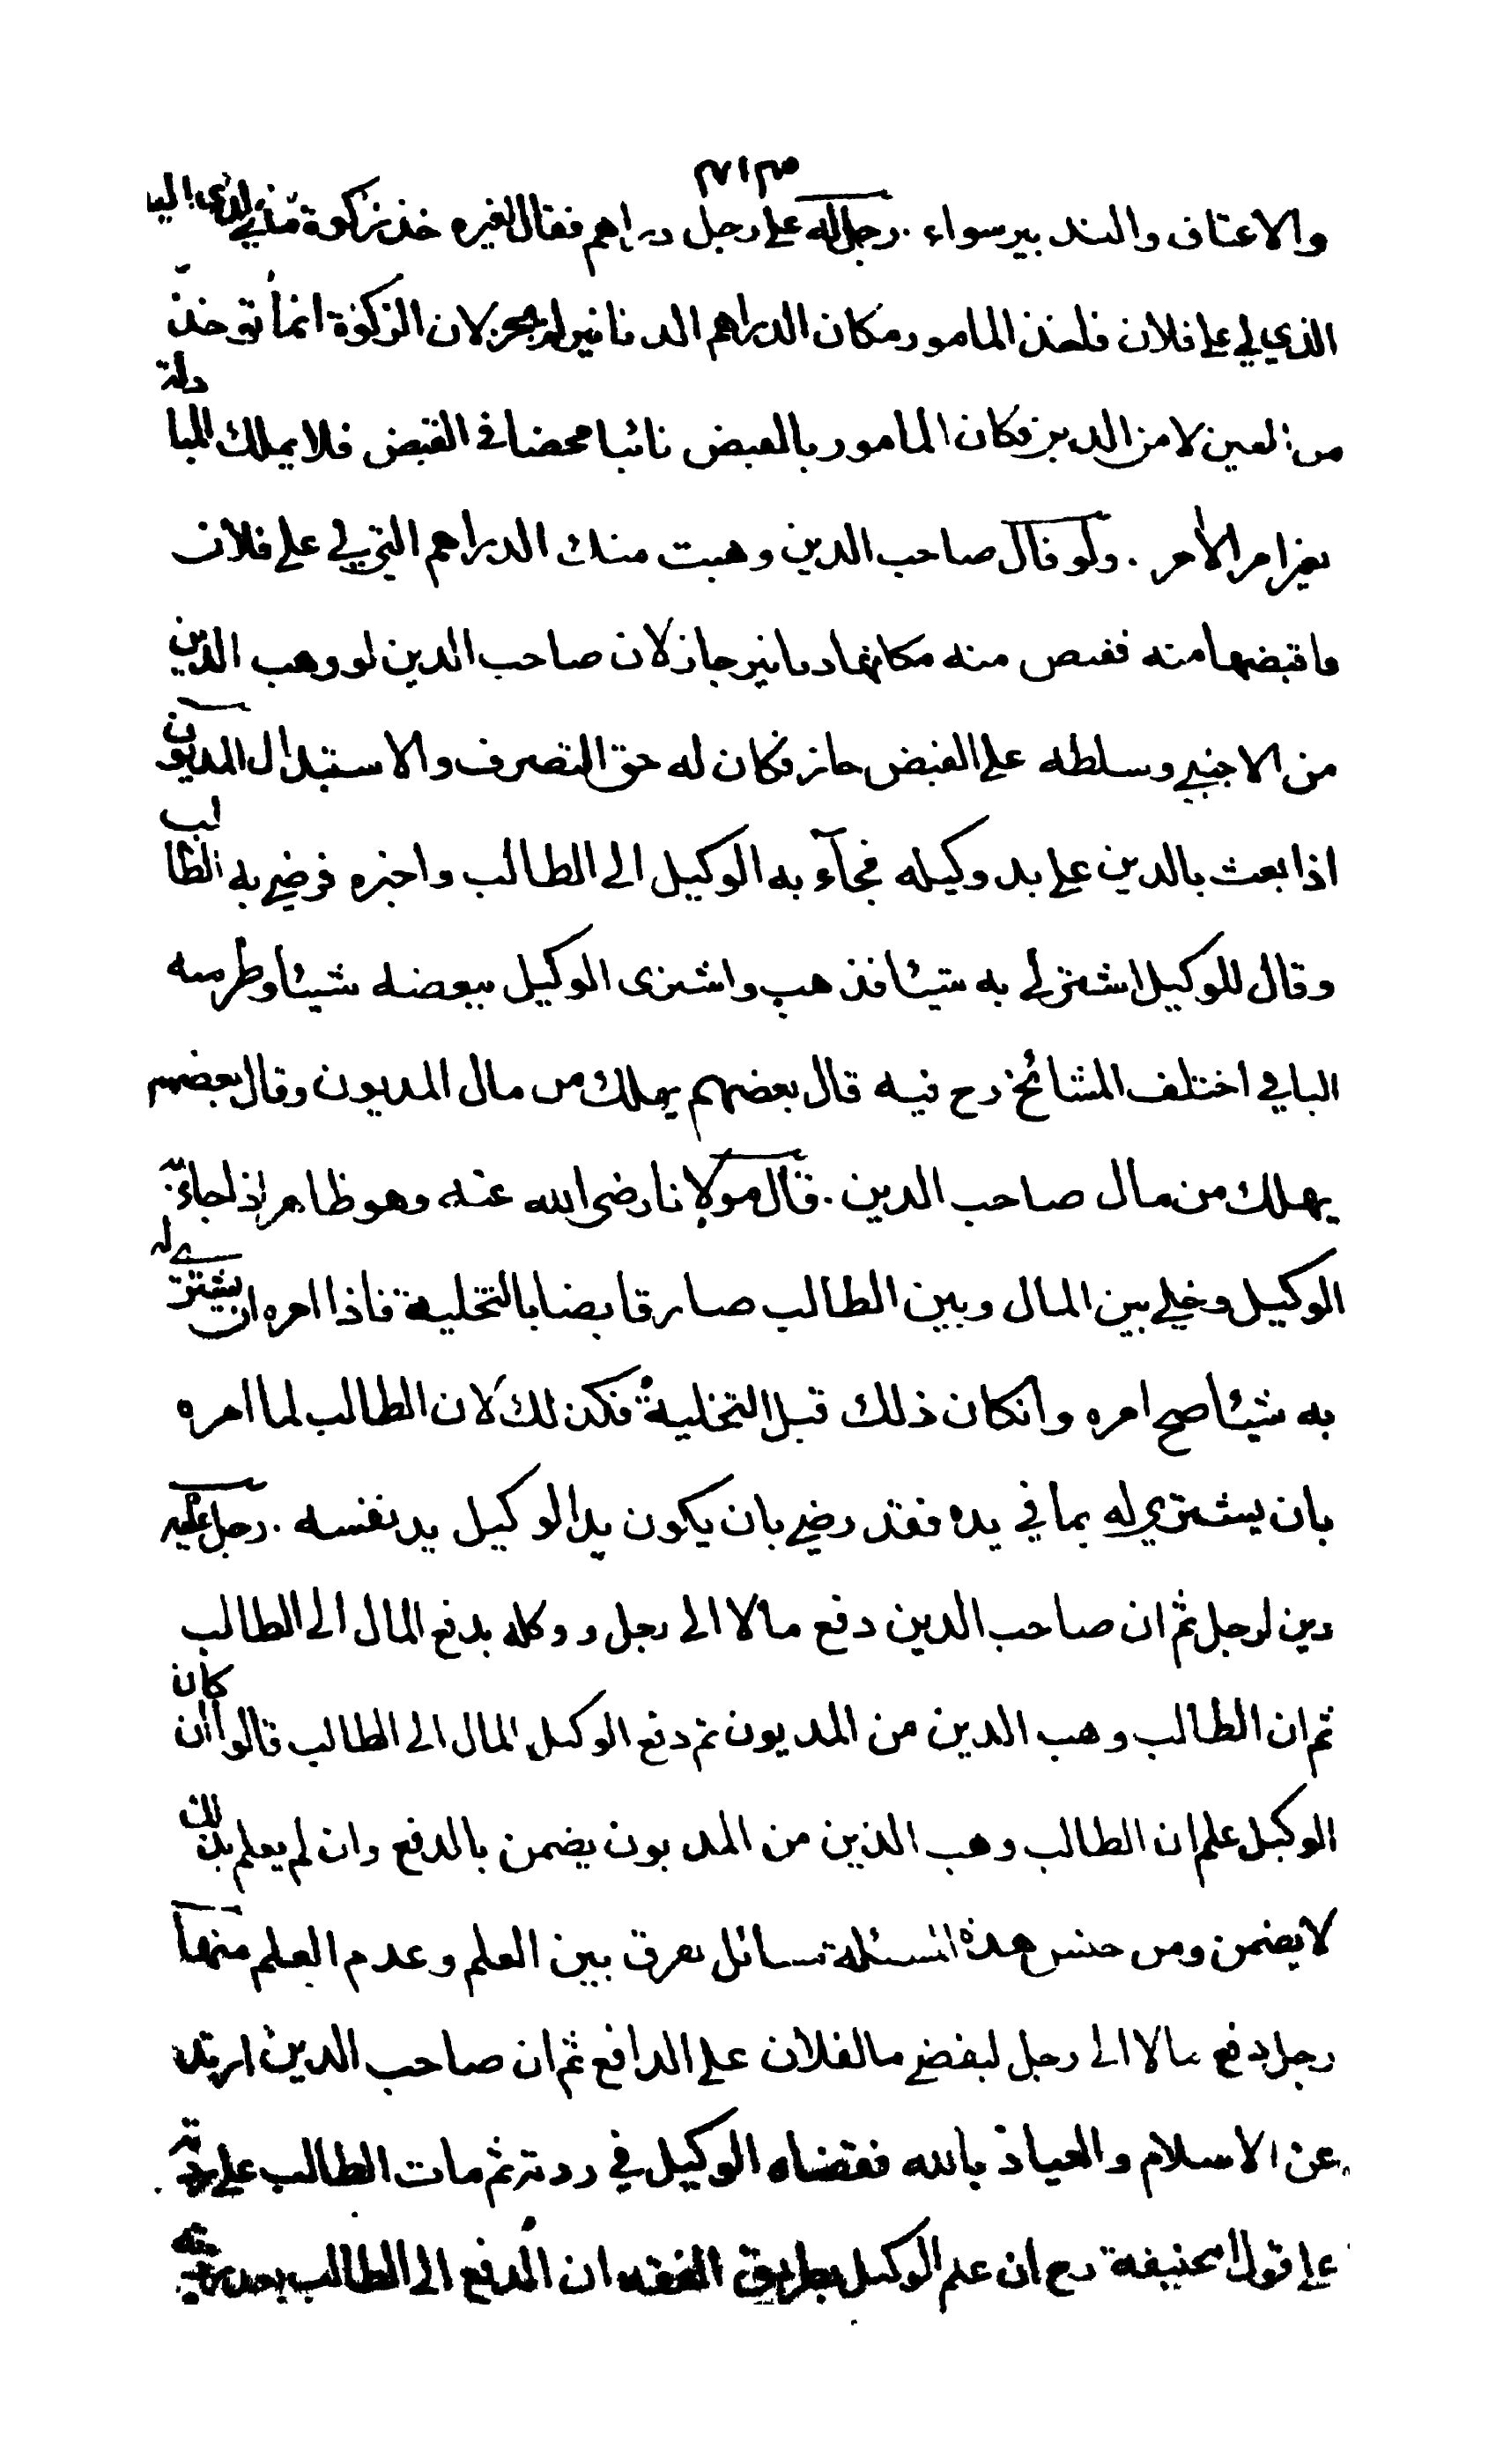 والاعتاق والتدبير سواء . رجل له على رجل دراهم فقال لغيره خذ زكوة مالي
الذي لي على فلان فاخذ المامور مكان الدراهم الدنانير لم يجز لان الزكوة انما تؤخذ
من العين لا من الدين فكان المامور بالقبض نائبا محضا في القبض فلا يملك المبادلة
بغير امر الامر . ولو قال صاحب الدين وهبت منك الدراهم التي لي على فلان
فاقبضها منه فقبض منه مكانها دنانير جاز لان صاحب الدين لو وهب الدين
من الاجنبي وسلطه على القبض جاز فكان له حق التصرف والاستبدال المديون
اذا بعث بالدين على يد وكيله فجآء به الوكيل الى الطالب واخبره فرضي به الطالب
وقال للوكيل اشتر لي به شيئا فذهب واشترى الوكيل ببعضه شيئا وطر منه
الباقي اختلف المشائخ رح فيه قال بعضهم يهلك من مال المديون وقال بعضهم
يهلك من مال صاحب الدين . قال مولانا رضى الله عنه وهو ظاهر اذا جاء به
الوكيل وخلى بين المال وبين الطالب صار قابضا بالتخلية فاذا امره ان يشتري له
به شيئا صح امره وانكان ذلك قبل التخلية فكذلك لان الطالب لما امره
بان يشتري له بما في يده فقد رضي بان يكون يد الوكيل يد نفسه . رجل عليه
دين لرجل ثم ان صاحب الدين دفع مالا الى رجل ووكله بدفع المال الى الطالب
ثم ان الطالب وهب الدين من المديون ثم دفع الوكيل المال الى الطالب قالوا ان كان
الوكيل علم ان الطالب وهب الدين من المديون يضمن بالدفع وان لم يعلم بذلك
لا يضمن ومن جنس هذه المسئلة مسائل تفرق بين العلم وعدم العلم منها
رجل دفع مالا الى رجل ليقضي مالفلان على الدافع ثم ان صاحب الدين ارتد
عن الاسلام والعياذ بالله فقضاه الوكيل في ردته ثم مات الطالب على ردته
على قول ابي حنيفة رح ان علم الوكيل بطريق الفقه ان الدفع الى الطالب بعد ردته